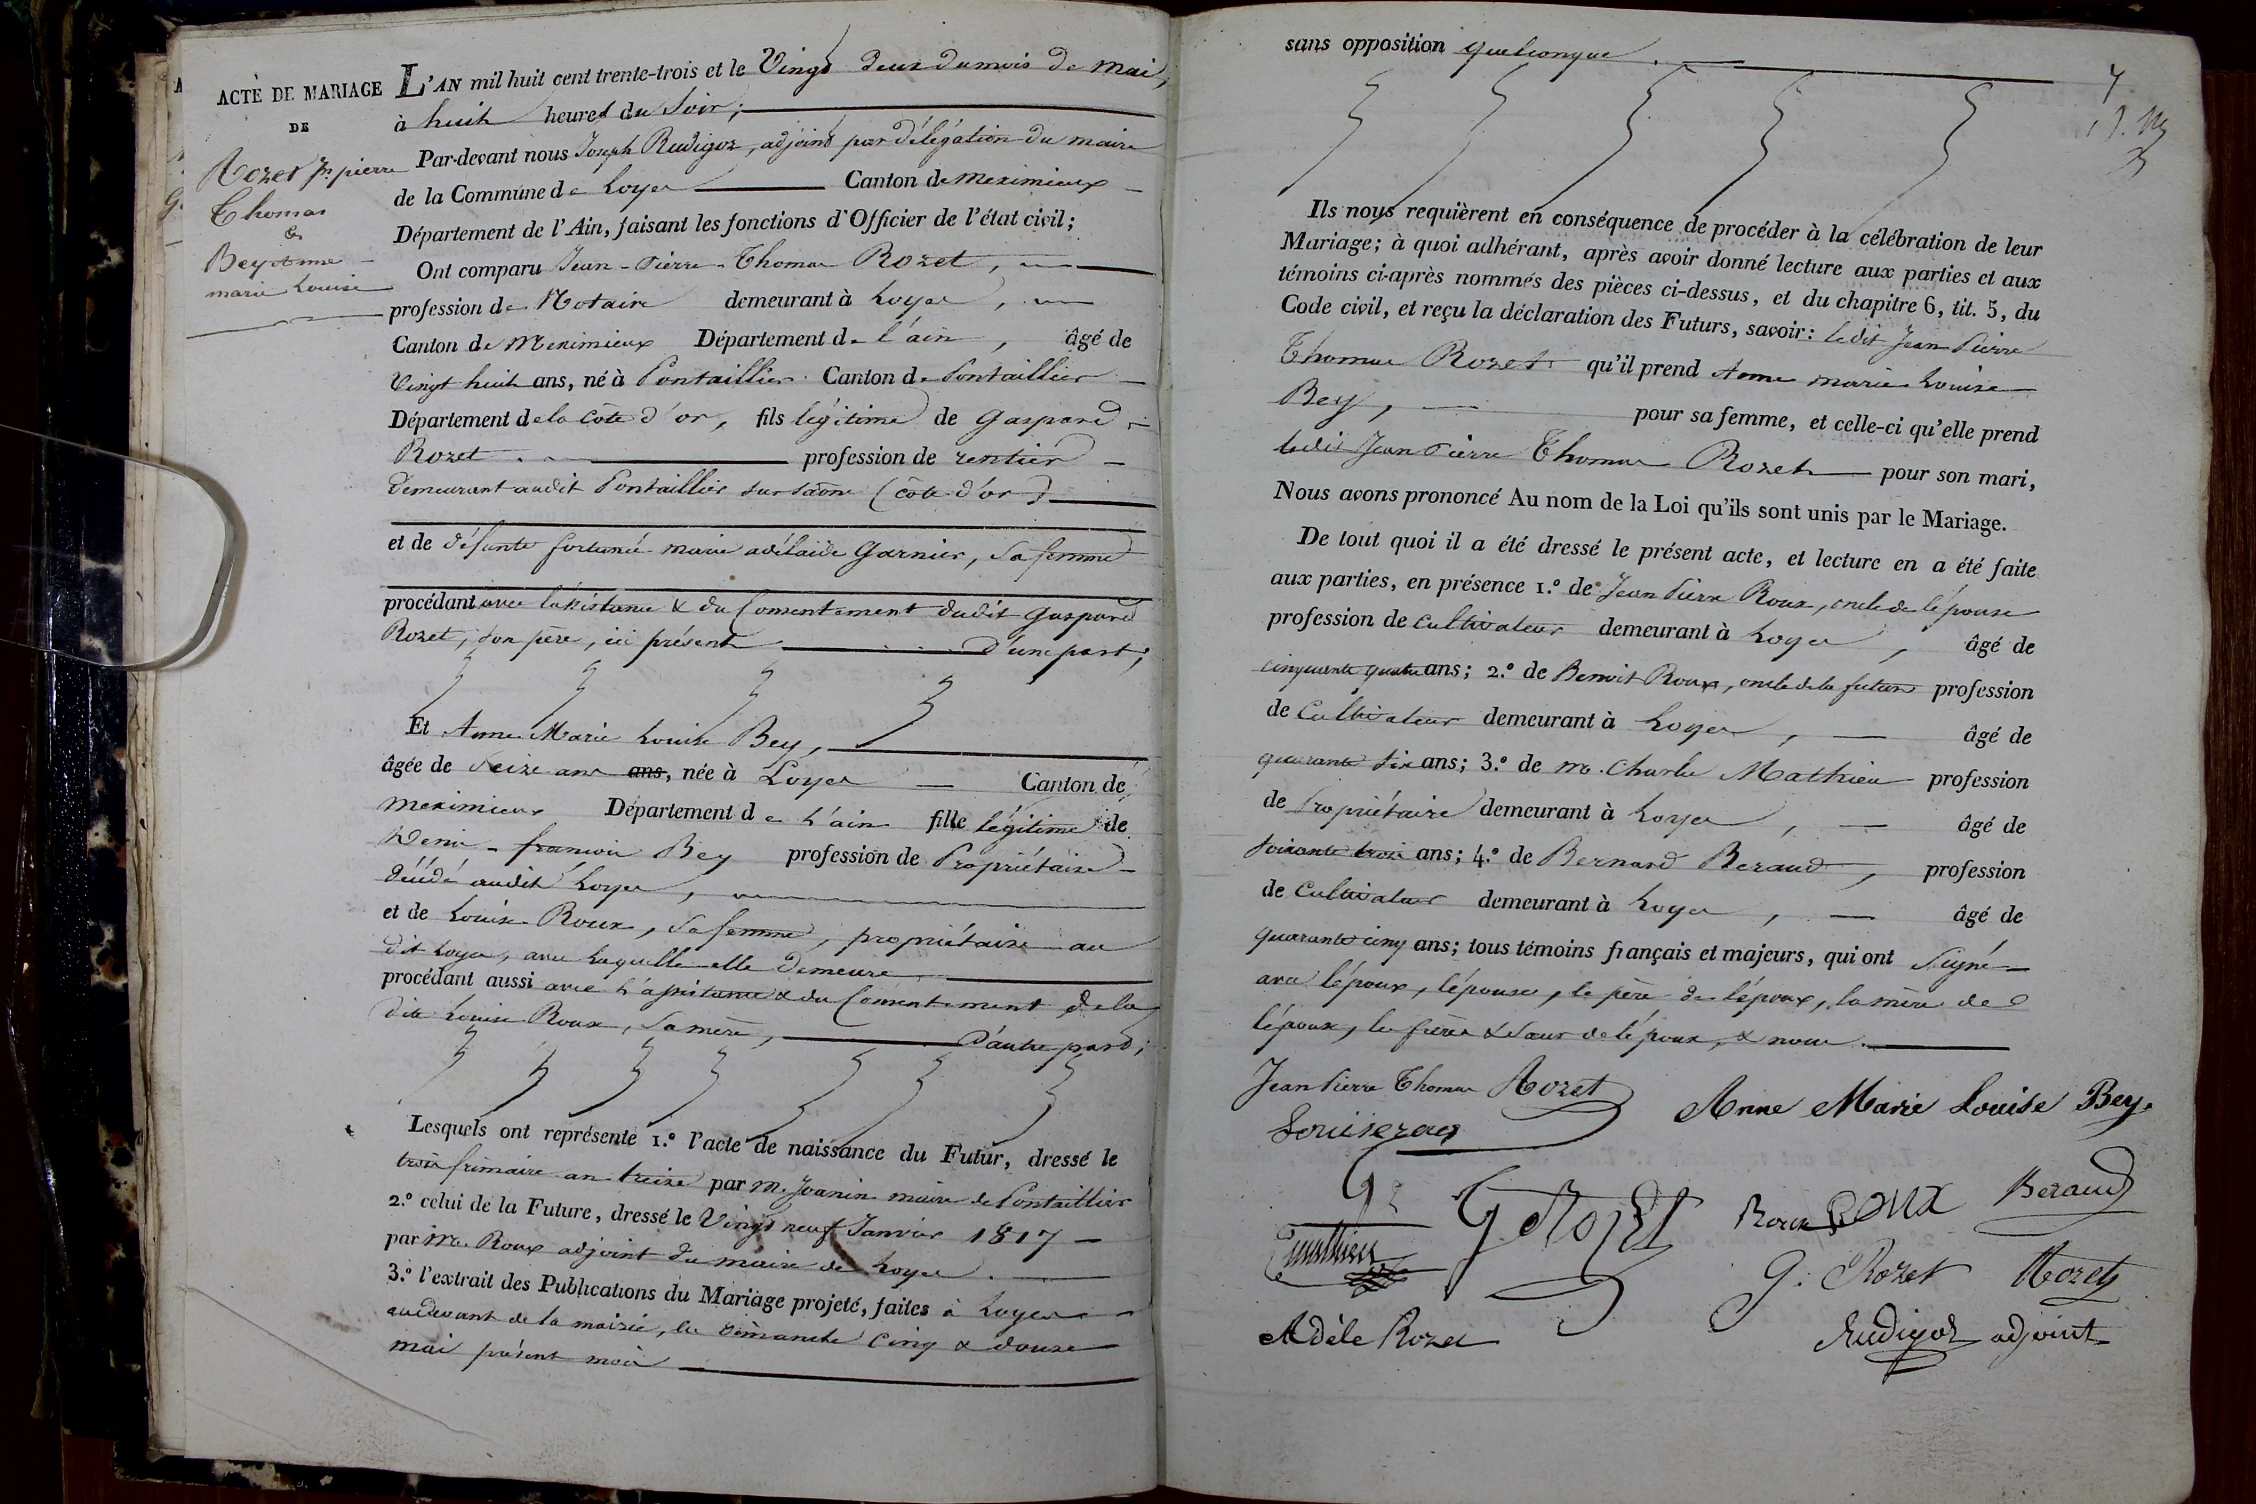 ACTE DE MARIAGE
DE
Rozet Jn pierre
Thomas
&
Bey anne
marie Louise
L'AN mil huit cent trente-trois et le Vingt deux du mois de Mai,
à huit heures du Soir;
Par-devant nous Joseph Rudigoz, adjoint par délégation du maire
de la Commune de Loyes Canton de Meximieux
Département de l'Ain, faisant les fonctions d'Officier de l'état civil;
Ont comparu Jean-Pierre-Thomas Rozet,
profession de Notaire demeurant à Loyes,
Canton de Meximieux Département de l'ain, âgé de
Vingt huit ans, né à Pontaillier Canton de Pontaillier
Département de la Côte d'or, fils légitime de Gaspard
Rozet profession de rentier
demeurant audit Pontaillier sur Saône (côte d'or)
et de défunte fortunée marie adélaïde Garnier, sa femme
procédant avec l'assistance & du Consentement dudit Gaspard
Rozet, son père, ici présent d'une part;
Et Anne Marie Louise Bey,
âgée de Seize ans ans, née à Loyes Canton de
Meximieux Département de L'ain fille légitime de
Denis-françois Bey profession de Propriétaire
décédé audit Loyes,
et de Louise Roux, sa femme, propriétaire au
dit Loyes, avec laquelle elle demeure
procédant aussi avec L'assistance & du Consentement de la
dite Louise Roux, sa mère, D'autre part;
Lesquels ont représenté 1.º l'acte de naissance du Futur, dressé le
trois frimaire an treize par M. Joanin maire de Pontaillier
2.º celui de la Future, dressé le Vingt neuf Janvier 1817
par Mr. Roux adjoint du maire de Loyes
3.º l'extrait des Publications du Mariage projeté, faites à Loyes
audevant de la mairie, les dimanche cinq & douze
mai présent mois
sans opposition quelconque
7
Ils nous requièrent en conséquence de procéder à la célébration de leur
Mariage; à quoi adhérant, après avoir donné lecture aux parties et aux
témoins ci-après nommés des pièces ci-dessus, et du chapitre 6, tit. 5, du
Code civil, et reçu la déclaration des Futurs, savoir: ledit Jean Pierre
Thomas Rozet qu'il prend Anne marie Louise
Bey, pour sa femme, et celle-ci qu'elle prend
ledit Jean Pierre Thomas Rozet pour son mari,
Nous avons prononcé Au nom de la Loi qu'ils sont unis par le Mariage.
De tout quoi il a été dressé le présent acte, et lecture en a été faite
aux parties, en présence 1.º de Jean Pierre Roux, oncle de l'épouse
profession de cultivateur demeurant à Loyes, âgé de
cinquante quatre ans; 2.º de Benoit Roux, oncle de la future profession
de Cultivateur demeurant à Loyes, âgé de
quarante six ans; 3.º de Mr. Charles Mathieu profession
de Propriétaire demeurant à Loyes, âgé de
soixante trois ans; 4.º de Bernard Beraud, profession
de Cultivateur demeurant à Loyes, âgé de
quarante cinq ans; tous témoins français et majeurs, qui ont signé
avec l'époux, l'épouse, le père de l'époux, la mère de
l'épouse, les frères & sœur de l'époux, & nous
Jean Pierre Thomas Rozet
Anne Marie Louise Bey.
G Rozet
Roux
Roux
Beraud
Cmathieu
G. Rozet
Rozet
Adèle Rozet
Rudigoz adjoint